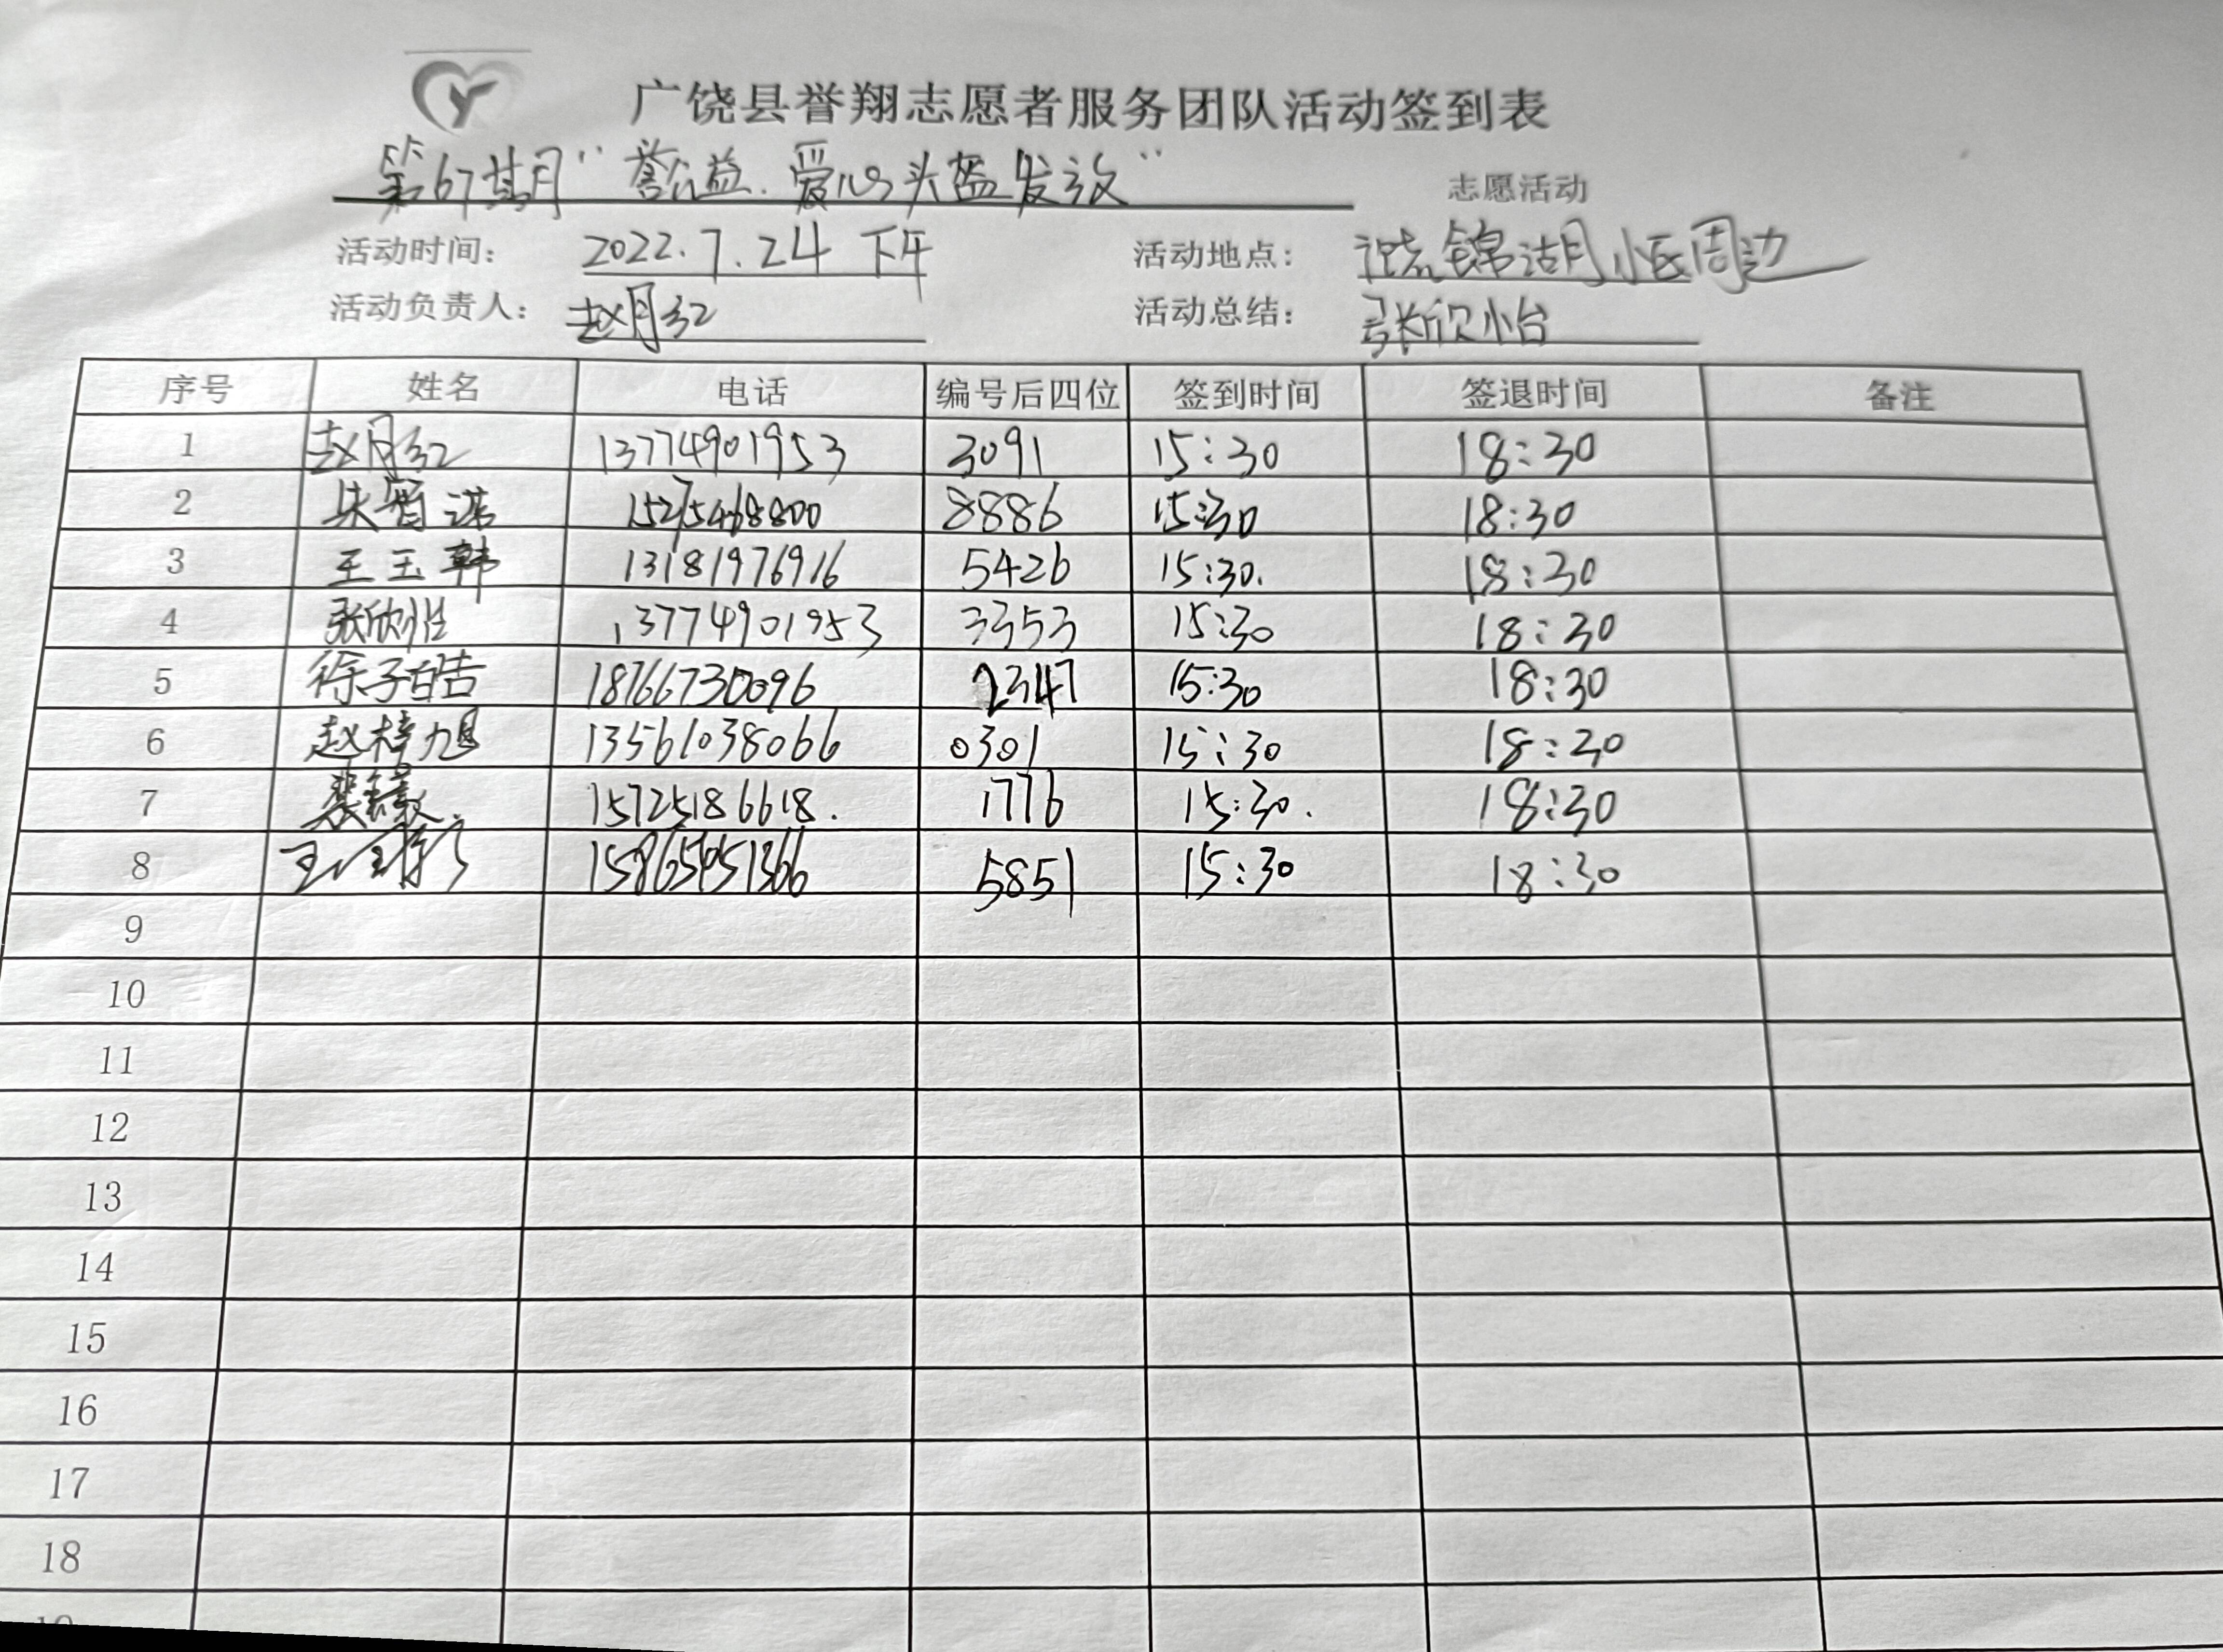 广饶县誉翔志愿者服务团队活动签到表
第67期"誉公益.爱心头盔发放" 志愿活动
活动时间: 2022.7.24 下午 活动地点: 锦湖小区周边
活动负责人: 赵月红 活动总结: 张欣怡
序号 姓名 电话 编号后四位 签到时间 签退时间 备注
1 赵月红 13774901953 3091 15:30 18:30
2 15275468800 8886 15:30 18:30
3 王玉韩 13181976916 5426 15:30. 18:30
4 张欣怡 13774901953 3353 15:30 18:30
5 徐子皓 18766730096 2347 15:30 18:30
6 赵梓旭 13561038066 0301 15:30 18:30
7 15725186618. 1776 15:30. 18:30
8 5851 15:30 18:30
9
10
11
12
13
14
15
16
17
18